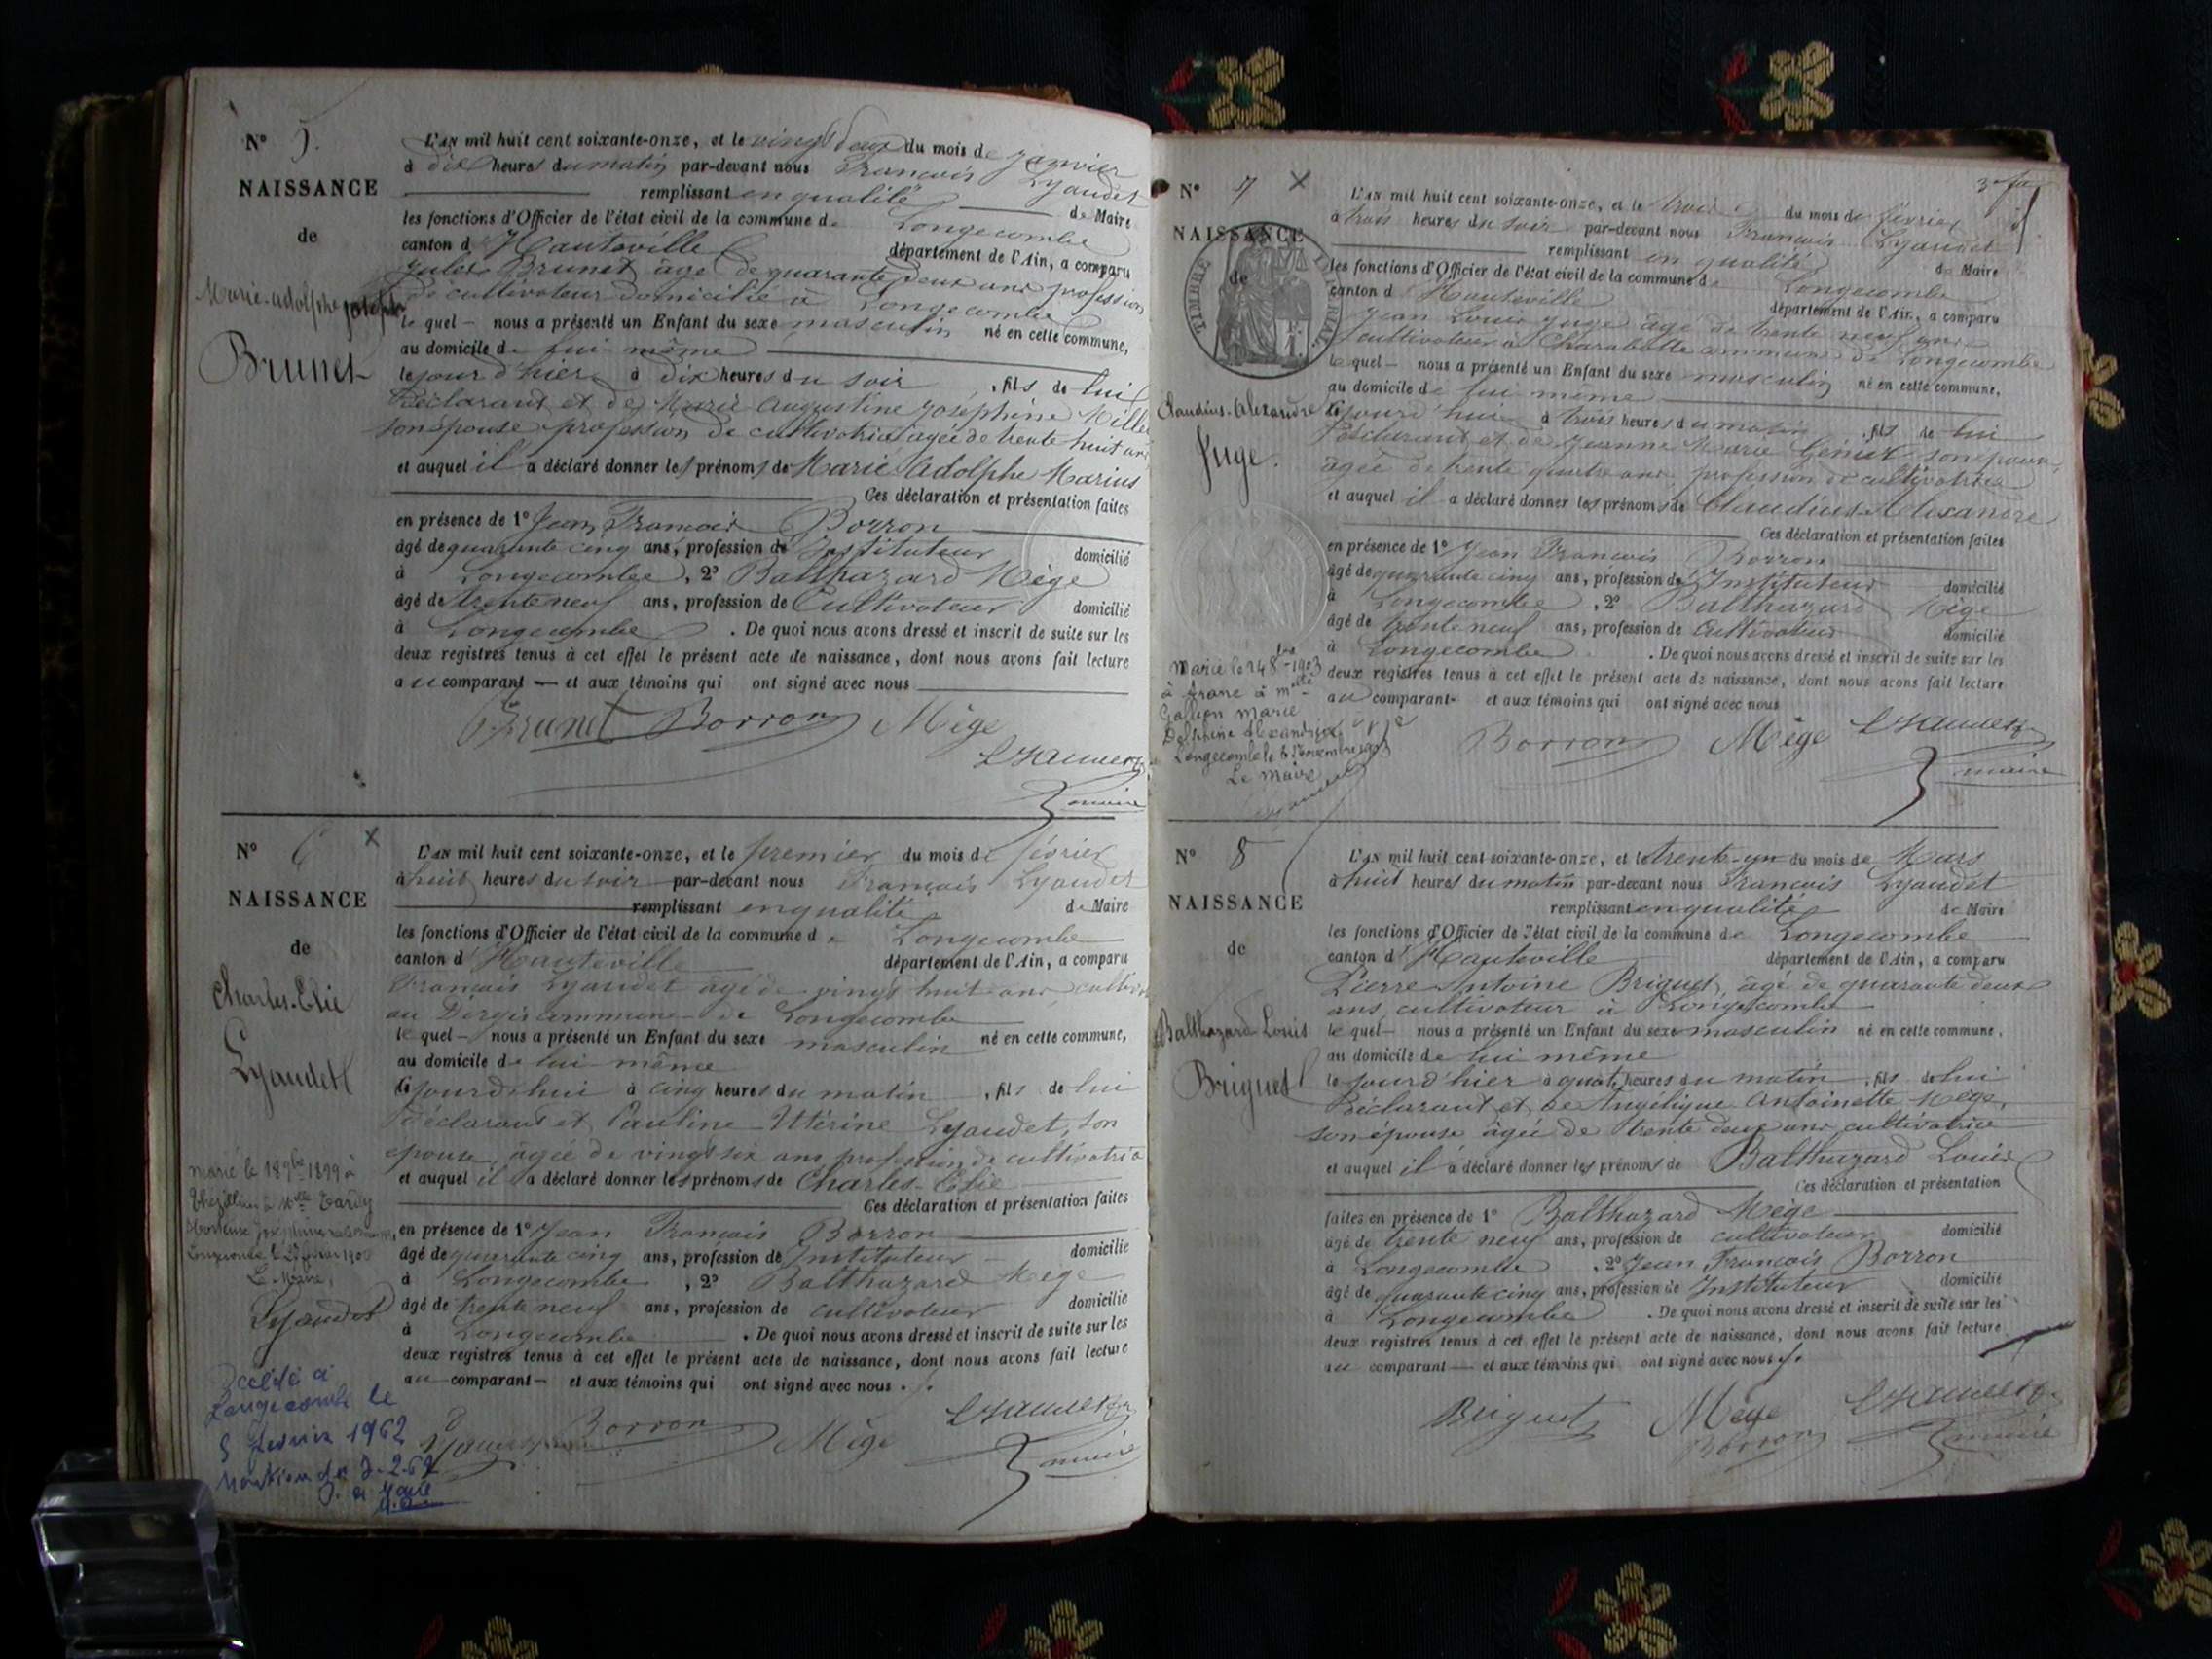 N° 5.
NAISSANCE
de
Marie-Adolphe
Brunet
L'AN mil huit cent soixante-onze, et le vingt deux du mois de Janvier
à dix heures du matin par-devant nous François Lyaudet
remplissant en qualité de Maire
les fonctions d'Officier de l'état civil de la commune de Longecombe
canton d'Hauteville département de l'Ain, a comparu
Jules Brunet âgé de quarante deux ans profession
de cultivateur domicilié à Longecombe
le quel nous a présenté un Enfant du sexe masculin né en cette commune,
au domicile de lui même
le jour d'hier à dix heures du soir , fils de lui
Déclarant et de Marie Augustine Joséphine
son épouse profession de cultivatrice âgée de trente huit ans
et auquel il a déclaré donner les prénoms de Marie Adolphe Marius
Ces déclaration et présentation faites
en présence de 1° Jean François Borron
âgé de quarante cinq ans, profession de Instituteur domicilié
à Longecombe, 2° Balthazard Mège
âgé de trente neuf ans, profession de Cultivateur domicilié
à Longecombe . De quoi nous avons dressé et inscrit de suite sur les
deux registres tenus à cet effet le présent acte de naissance, dont nous avons fait lecture
au comparant et aux témoins qui ont signé avec nous
Brunet Borron Mège
Lyaudet
maire
N° 6 x
NAISSANCE
de
Charles-Elie
Lyaudet
L'AN mil huit cent soixante-onze, et le premier du mois de février
à huit heures du soir par-devant nous François Lyaudet
remplissant en qualité de Maire
les fonctions d'Officier de l'état civil de la commune de Longecombe
canton d'Hauteville département de l'Ain, a comparu
François Lyaudet âgé de vingt huit ans
au Dergis commune de Longecombe
le quel nous a présenté un Enfant du sexe masculin né en cette commune,
au domicile de lui même
le jourd'hui à cinq heures du matin , fils de lui
Déclarant et Pauline Utérine Lyaudet, son
épouse, âgée de vingt six ans profession de cultivatrice
et auquel il a déclaré donner les prénoms de Charles-Elie
Ces déclaration et présentation faites
en présence de 1° Jean François Borron
âgé de quarante cinq ans, profession de Instituteur domicilié
à Longecombe , 2° Balthazard Mège
âgé de trente neuf ans, profession de cultivateur domicilié
à Longecombe . De quoi nous avons dressé et inscrit de suite sur les
deux registres tenus à cet effet le présent acte de naissance, dont nous avons fait lecture
au comparant et aux témoins qui ont signé avec nous .
marié le 18 9bre 1899 à
Thézillieu à Mlle Tardy
Joséphine
Longecombe le 1900
Le Maire,
Lyaudet
Décédé à
Longecombe le
5 février 1962
Mention du 7-2-62
Le Maire
Lyaudet Borron Mège Lyaudet
maire
N° 7 x
NAISSANCE
de
TIMBRE IMPÉRIAL
Claudius-Alexandre
Juge.
L'AN mil huit cent soixante-onze, et le trois du mois de février
à trois heures du soir par-devant nous François Lyaudet
remplissant en qualité de Maire
les fonctions d'Officier de l'état civil de la commune de Longecombe
canton d'Hauteville département de l'Ain, a comparu
Jean Louis Juge âgé de trente neuf ans
cultivateur à Charabotte commune de Longecombe
le quel nous a présenté un Enfant du sexe masculin né en cette commune,
au domicile de lui même
le jourd'hui à trois heures du matin , fils de lui
Déclarant et de Jeanne Marie Géniet son épouse,
âgée de trente quatre ans profession de cultivatrice
et auquel il a déclaré donner les prénoms de Claudius Alexandre
Ces déclaration et présentation faites
en présence de 1° Jean François Borron
âgé de quarante cinq ans, profession de Instituteur domicilié
à Longecombe , 2° Balthazard Mège
âgé de trente neuf ans, profession de Cultivateur domicilié
à Longecombe . De quoi nous avons dressé et inscrit de suite sur les
deux registres tenus à cet effet le présent acte de naissance, dont nous avons fait lecture
au comparant et aux témoins qui ont signé avec nous
Marié le 24 8bre 1903
à Arane à Mlle
Marie
Delphine Alexandrine
Longecombe le 6 Novembre 1903
Le Maire
Borron Mège Lyaudet
maire
N° 8
NAISSANCE
de
Balthazard Louis
Briguet
L'AN mil huit cent soixante-onze, et le trente-un du mois de Mars
à huit heures du matin par-devant nous François Lyaudet
remplissant en qualité de Maire
les fonctions d'Officier de l'état civil de la commune de Longecombe
canton d'Hauteville département de l'Ain, a comparu
Pierre Antoine Briguet, âgé de quarante deux
ans cultivateur à Longecombe
le quel nous a présenté un Enfant du sexe masculin né en cette commune,
au domicile de lui même
le jour d'hier à quatre heures du matin , fils de lui
Déclarant et de Angélique Antoinette Mège,
son épouse âgée de trente deux ans cultivatrice
et auquel il a déclaré donner les prénoms de Balthazard Louis
Ces déclaration et présentation
faites en présence de 1° Balthazard Mège
âgé de trente neuf ans, profession de cultivateur domicilié
à Longecombe , 2° Jean François Borron
âgé de quarante cinq ans, profession de Instituteur domicilié
à Longecombe . De quoi nous avons dressé et inscrit de suite sur les
deux registres tenus à cet effet le présent acte de naissance, dont nous avons fait lecture
au comparant et aux témoins qui ont signé avec nous.
Briguet Mège Lyaudet
Borron maire